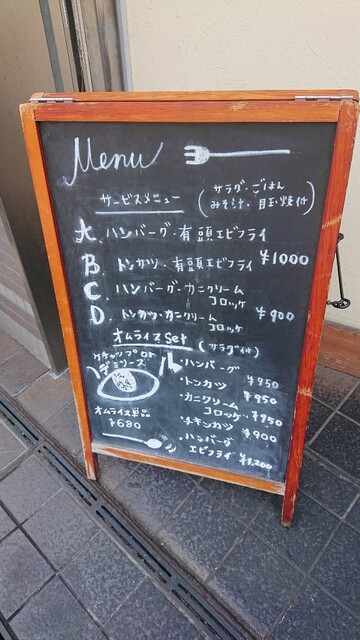 Menu
サービスメニュー
(サラダ・ごはん
みそ汁、目玉焼付)
A. ハンバーグ・有頭エビフライ
B トンカツ・有頭エビフライ ¥1000
C. ハンバーグ・カニクリーム
コロッケ
D. トンカツ・カニクリーム
コロッケ ¥900
オムライスset
(サラダ付)
ケチャップor
デミソース
オムライス単品
¥680
・ハンバーグ
¥950
・トンカツ
¥950
・カニクリーム
コロッケ ¥950
・チキンカツ
¥900
・ハンバーグ
エビフライ ¥1,200